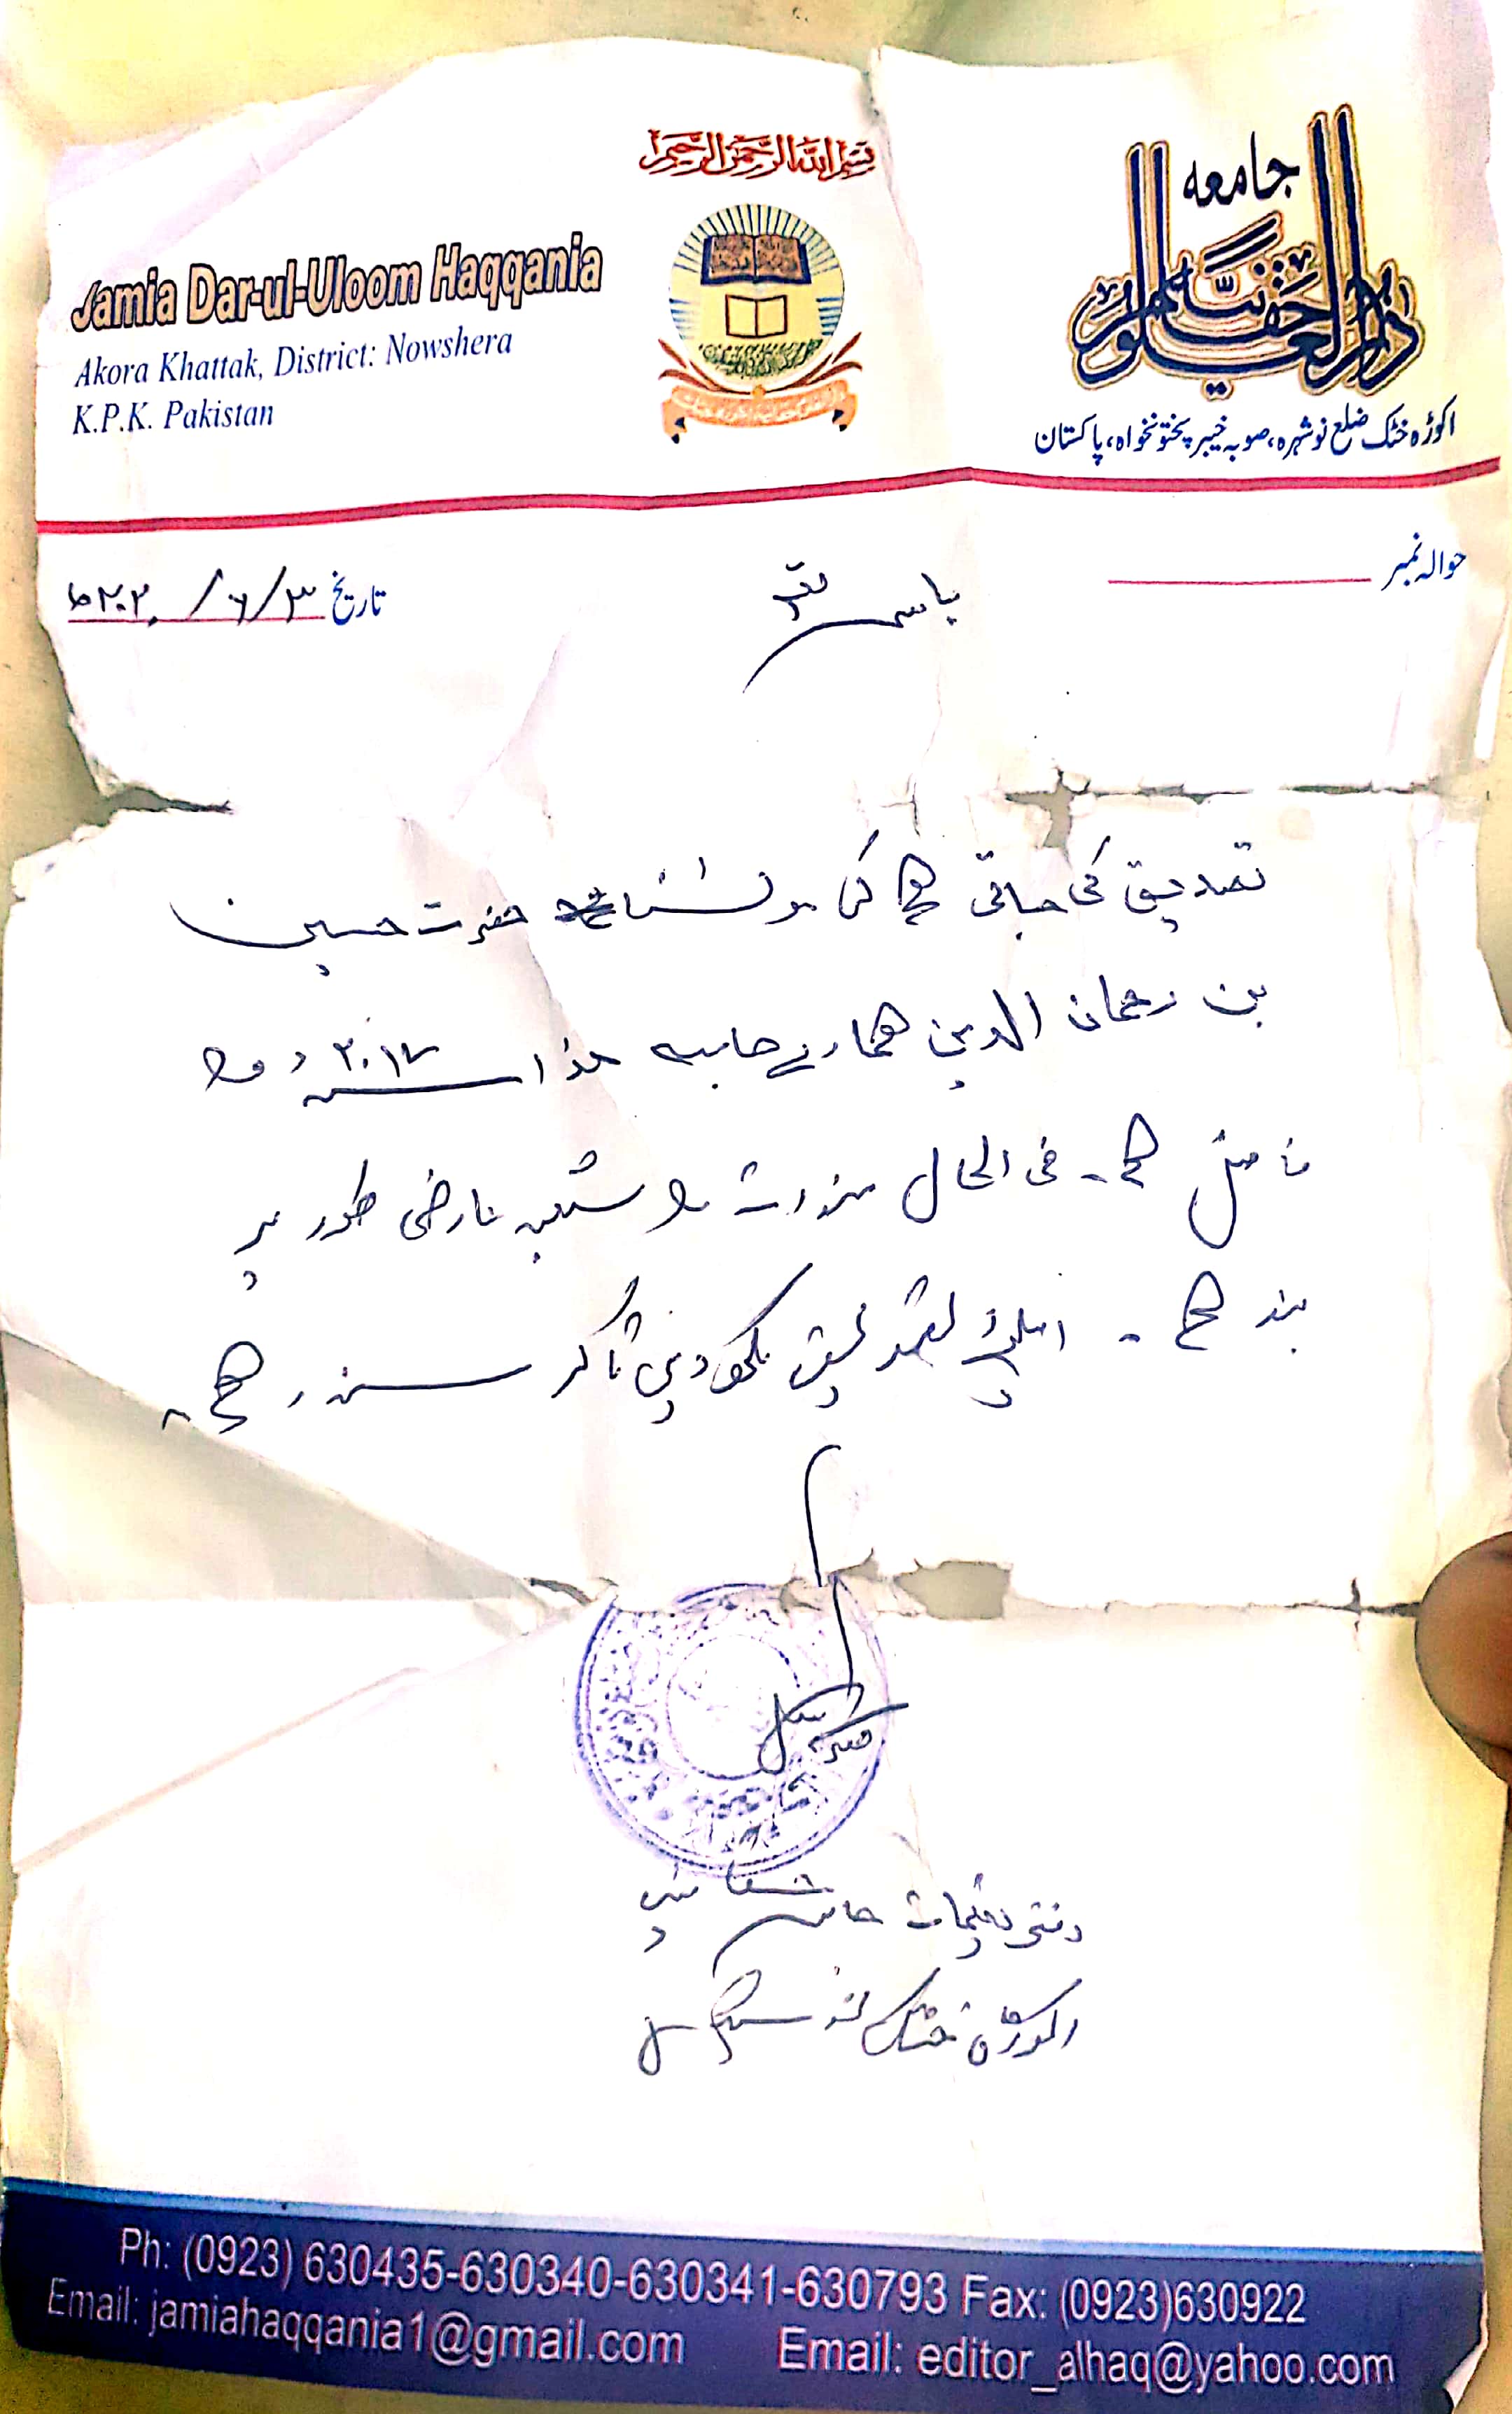 بسم اللہ الرحمن الرحیم
جامعہ
دارالعلوم حقانیہ
اکوڑہ خٹک ضلع نوشہرہ، صوبہ خیبر پختونخواہ، پاکستان
Jamia Dar-ul-Uloom Haqqania
Akora Khattak, District: Nowshera
K.P.K. Pakistan
حوالہ نمبر
باسمہ تعالیٰ
تاریخ ۳/۶/
تصدیق کی جاتی ہے کہ مولانا حضرت حسین
بن رحمان الدین ہمارے جامعہ ھذا سنہ ۲۰۱۷ء کا
فاضل ہے۔ فی الحال سندات کا شعبہ عارضی طور پر
بند ہے۔ اسلئے تصدیق لکھ دی تاکہ سند رہے۔
دفتر تعلیمات جامعہ حقانیہ
اکوڑہ خٹک نوشہرہ
Ph: (0923) 630435-630340-630341-630793 Fax: (0923)630922
Email: jamiahaqqania1@gmail.com Email: editor_alhaq@yahoo.com